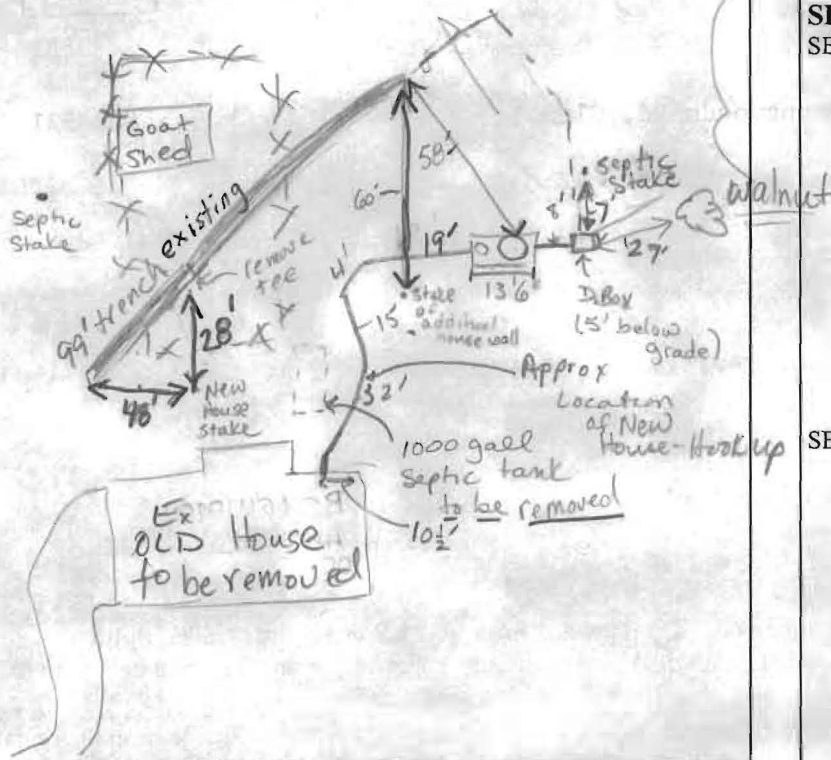 Goat
Shed
Septic
Stake
existing
99' trench
remove
tee
28'
48'
New
House
Stake
60'
58'
19'
4'
15'
32'
13'6"
Stake
of
additional
house wall
8'
7'
septic
Stake
walnut
27'
D.Box
(5' below
grade)
Approx
Location
of New
House-Hookup
1000 gall
Septic tank
to be removed
10½'
Ex
OLD House
to be removed